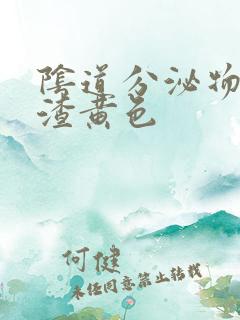 陰道分泌物
渣黄色
何健
未经同意禁止转载